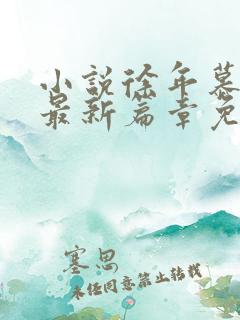 小說徐年慕
最新篇章免
塞思
未经同意禁止转载